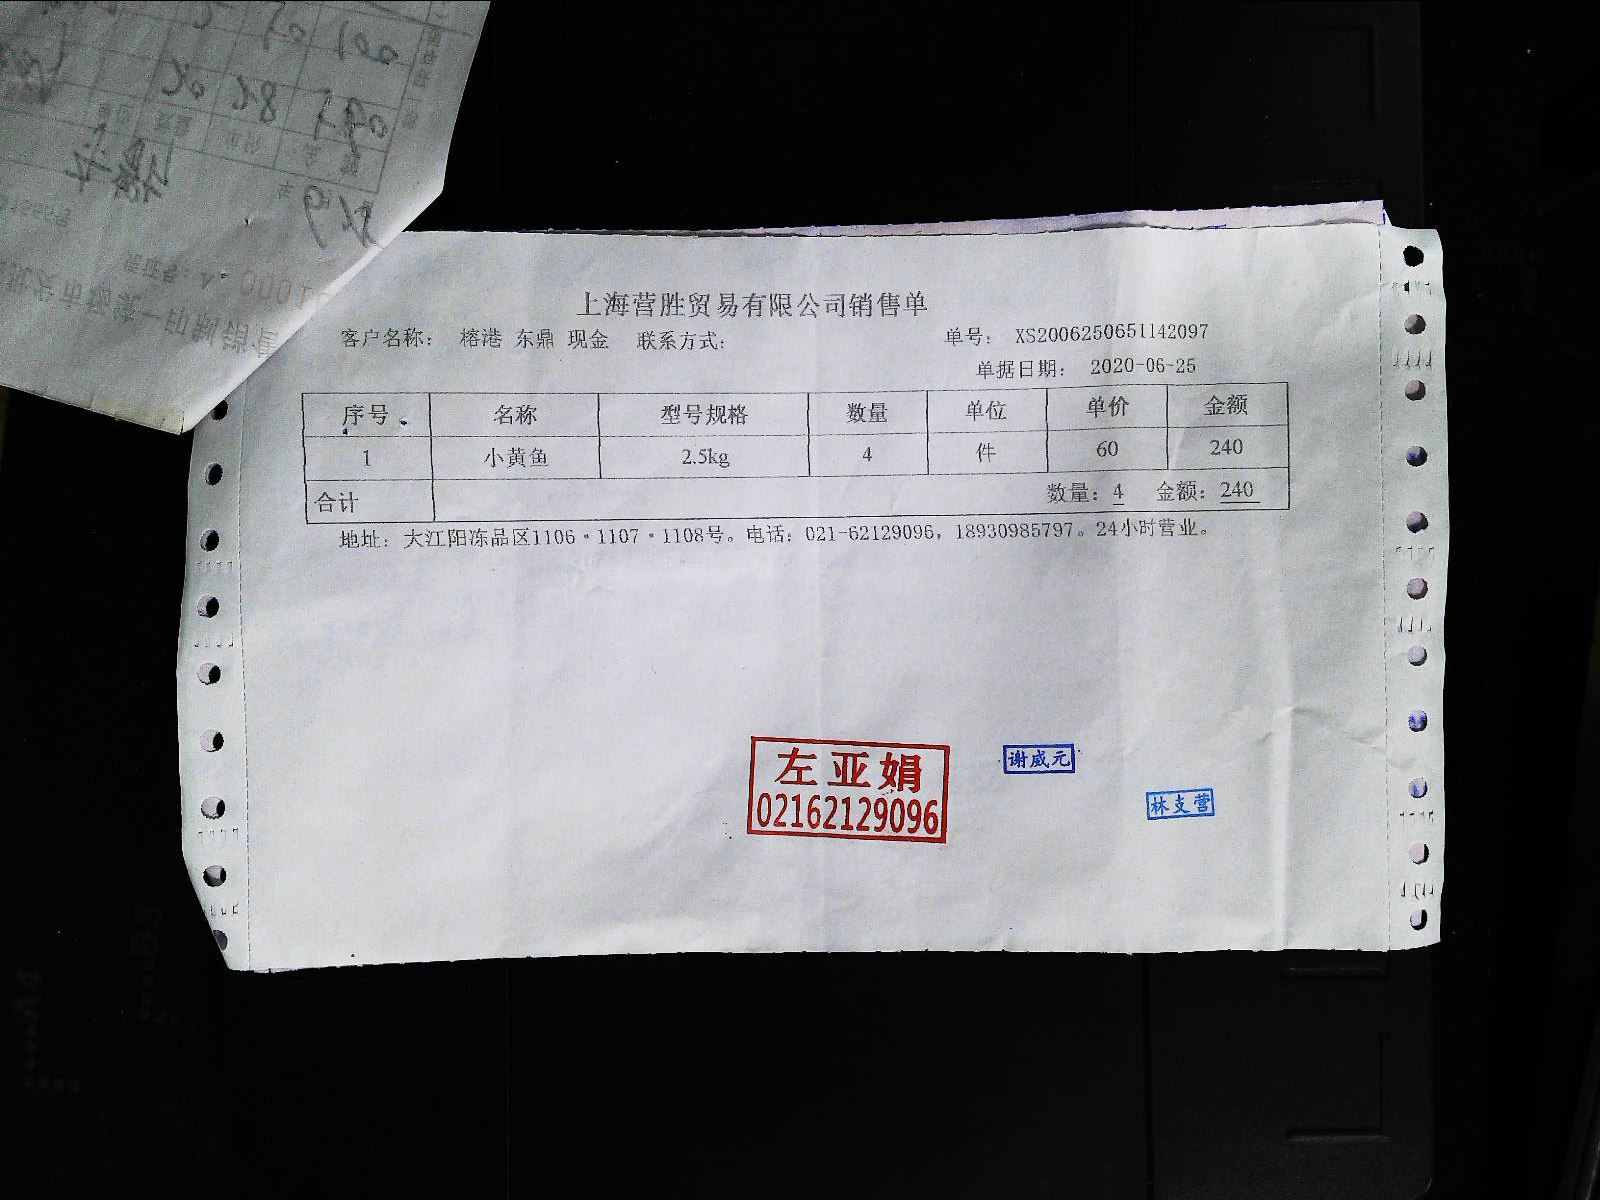 上海营胜贸易有限公司销售单
客户名称： 榕港 东鼎 现金 联系方式： 单号： XS2006250651142097
单据日期： 2020-06-25
序号 名称 型号规格 数量 单位 单价 金额
1 小黄鱼 2.5kg 4 件 60 240
合计 数量：4 金额：240
地址：大江阳冻品区1106·1107·1108号。电话：021-62129096，18930985797。24小时营业。
左亚娟
02162129096
谢威元
林支营